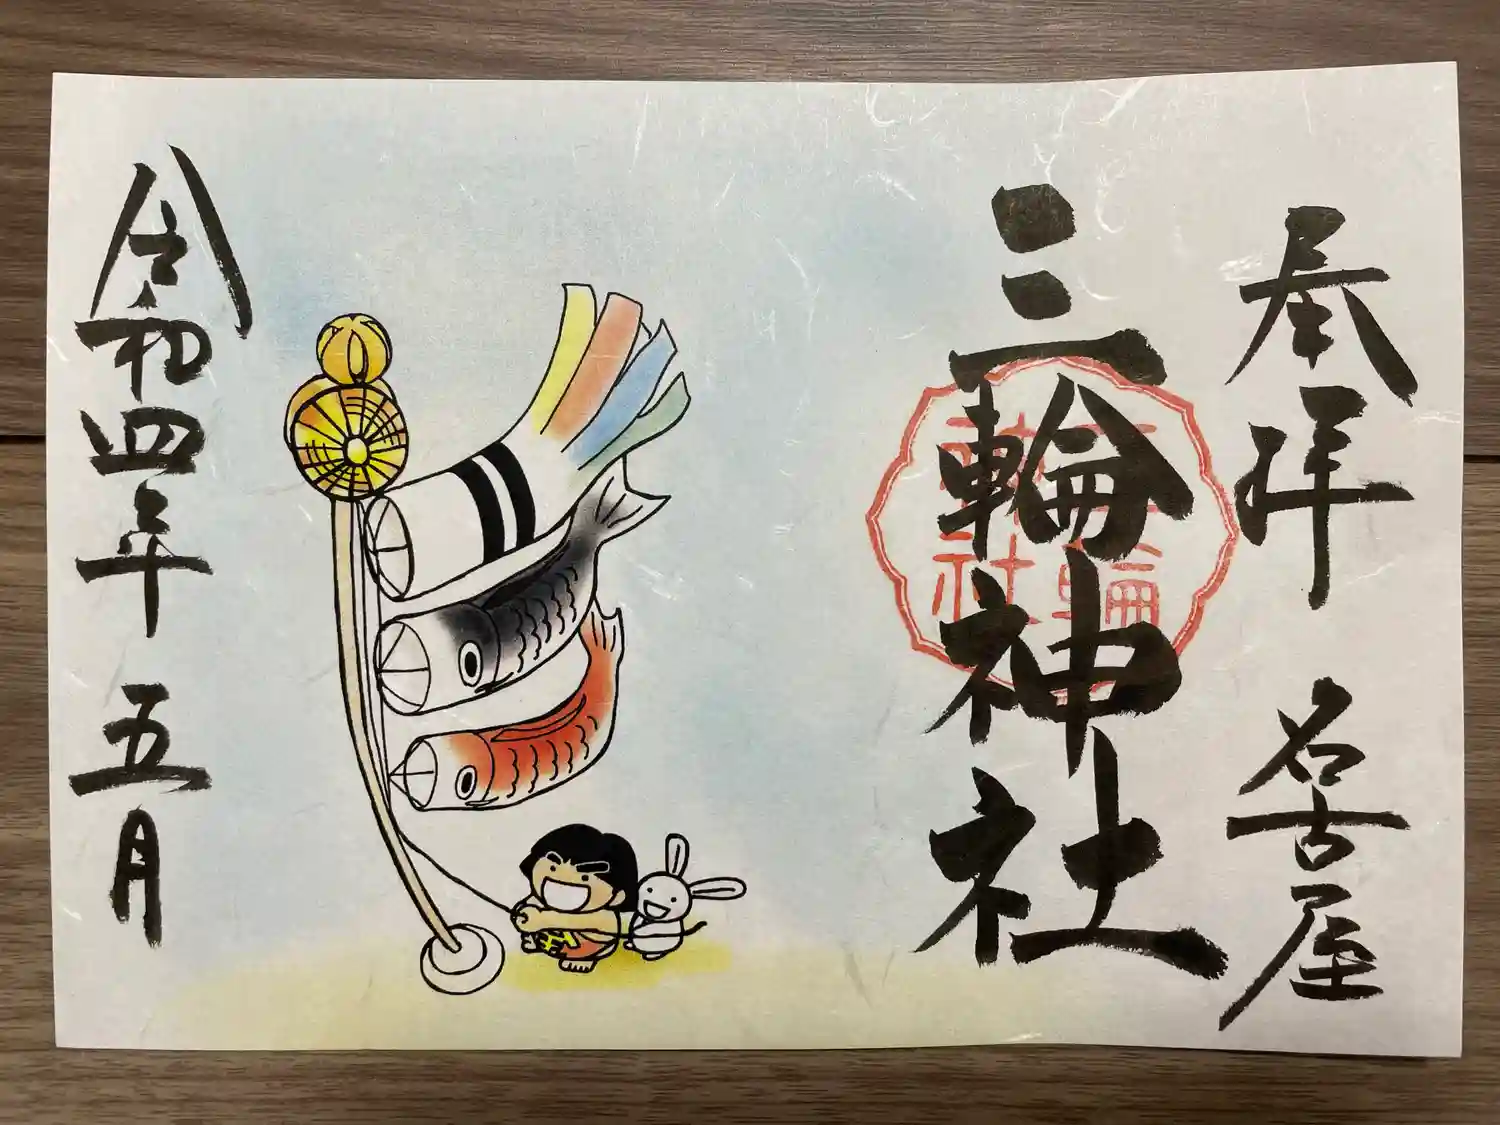 奉拝 名古屋
三輪神社
三輪神社
令和四年 五月